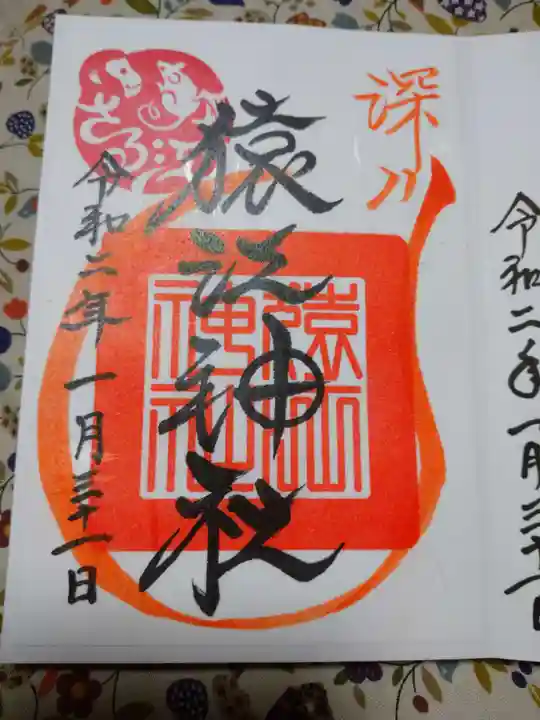 深川
猿江神社
令和二年一月三十一日
さる江
猿江神社
令和二年一月三十一日